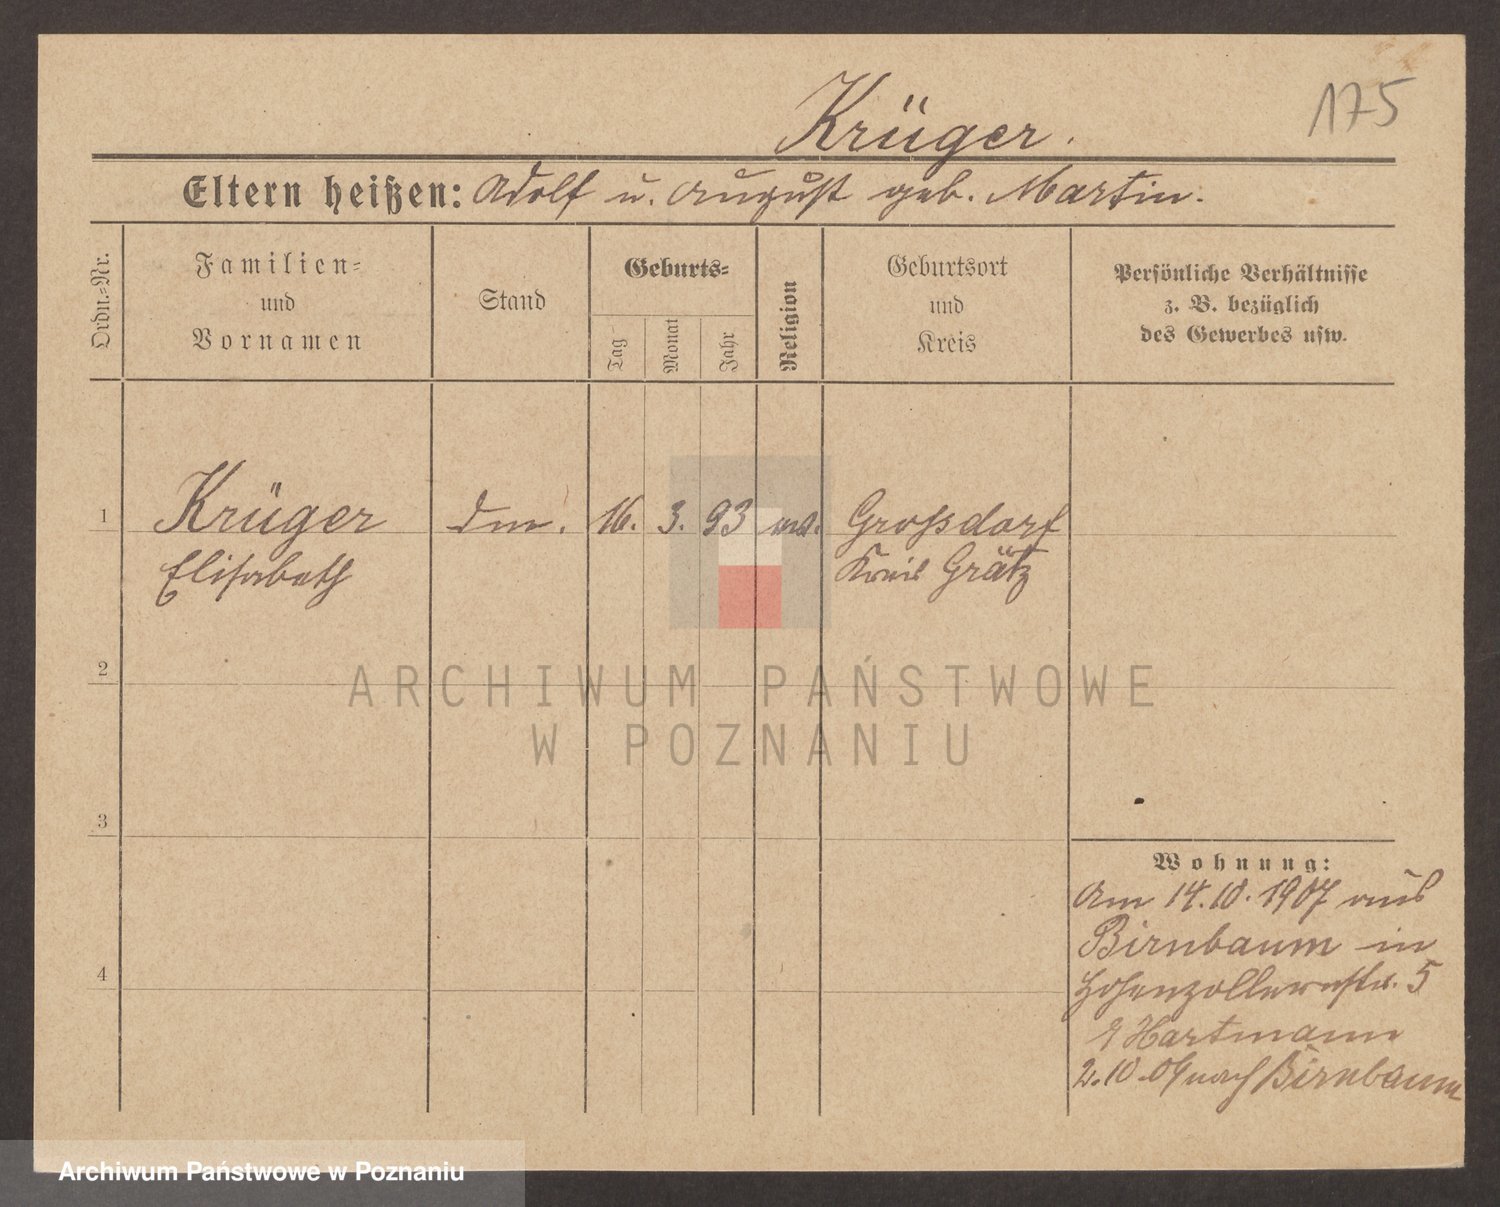 175
Krüger.
Eltern heißen: Adolf u. August geb. Martin.
Ordn.-Nr.
Familien-
und
Vornamen
Stand
Geburts-
Tag
Monat
Jahr
Religion
Geburtsort
und
Kreis
Persönliche Verhältnisse
z. B. bezüglich
des Gewerbes usw.
1 Krüger 16. 3. 93 Großdorf
Elisabeth Kreis Grätz
2
3
4
Wohnung:
Am 14.10.1907 aus
Birnbaum in
Hohenzollernstr. 5
Hartmann
2.10.09 nach Birnbaum
ARCHIWUM PAŃSTWOWE
W POZNANIU
Archiwum Państwowe w Poznaniu